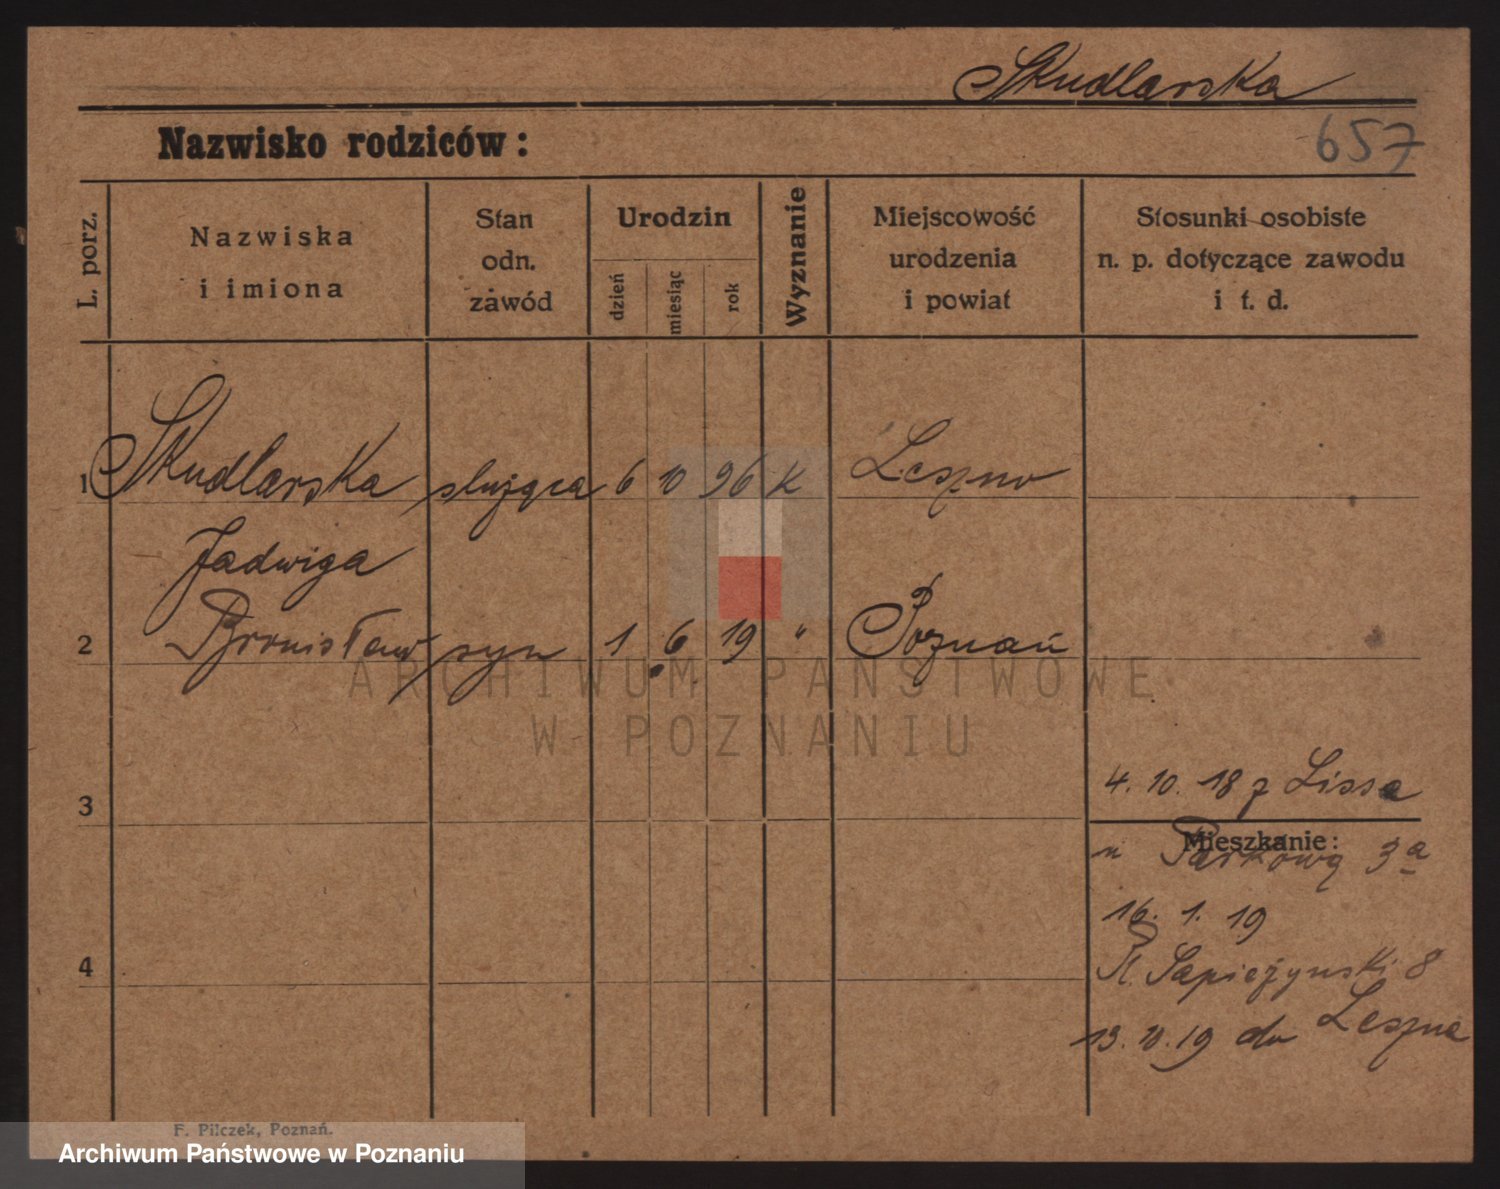 Skudlarska
Nazwisko rodziców:
657
L. porz.
Nazwiska
i imiona
Stan
odn.
zawód
Urodzin
dzień
miesiąc
rok
Wyznanie
Miejscowość
urodzenia
i powiat
Stosunki osobiste
n. p. dotyczące zawodu
i t. d.
1 Skudlarska służąca 6 10 96 K Leszno
Jadwiga
2 Bronisław syn 1 6 19 " Poznań
ARCHIWUM PAŃSTWOWE
W POZNANIU
3
4. 10. 18 z Lissa
Mieszkanie:
Parkową 3a
16. 1. 19
Pl. Sapieżynski 8
4
13. 10. 19 do Leszna
F. Pilczek, Poznań.
Archiwum Państwowe w Poznaniu